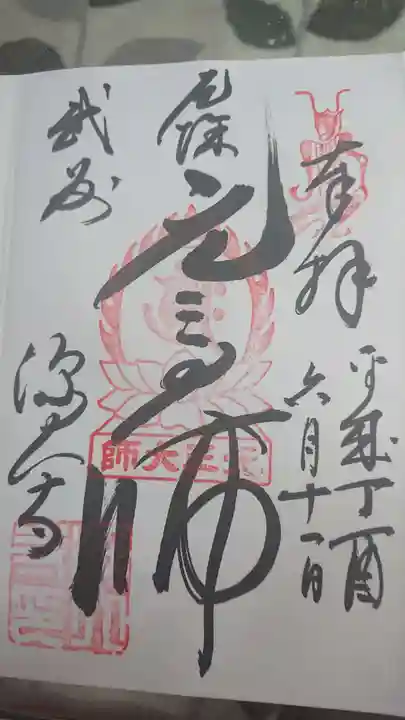 奉拝
平成丁酉
六月十一日
厄除
元三大師
元三大師
武州
深大寺